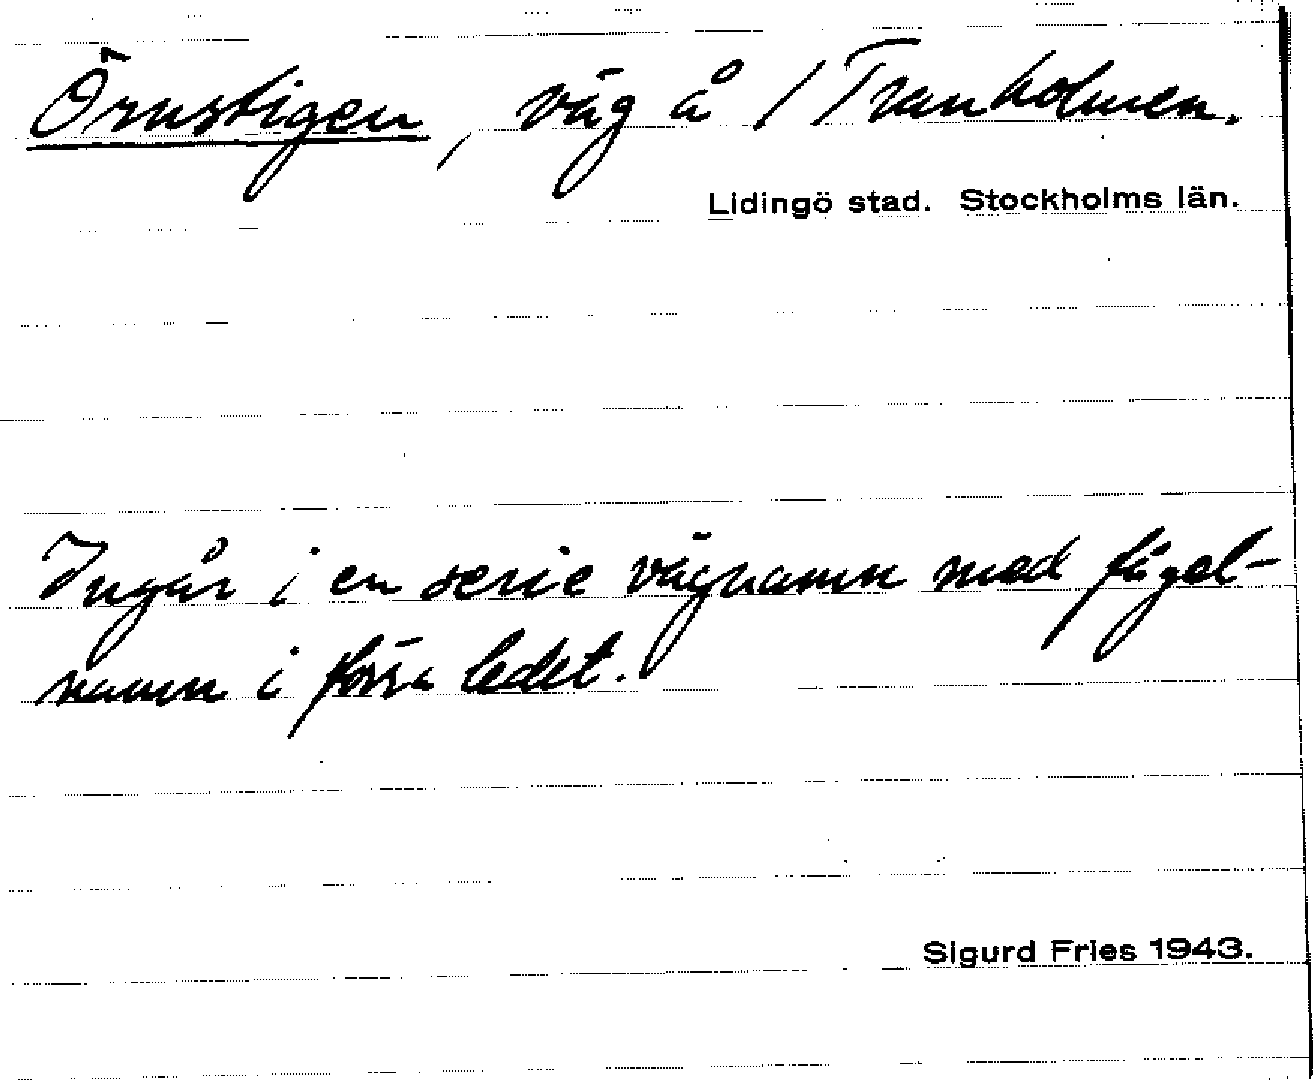 Örnstigen, väg å / Tranholmen.
Lidingö stad. Stockholms län.
Ingår i en serie vägnamn med fågel-
namn i förra ledet.
Sigurd Fries 1943.